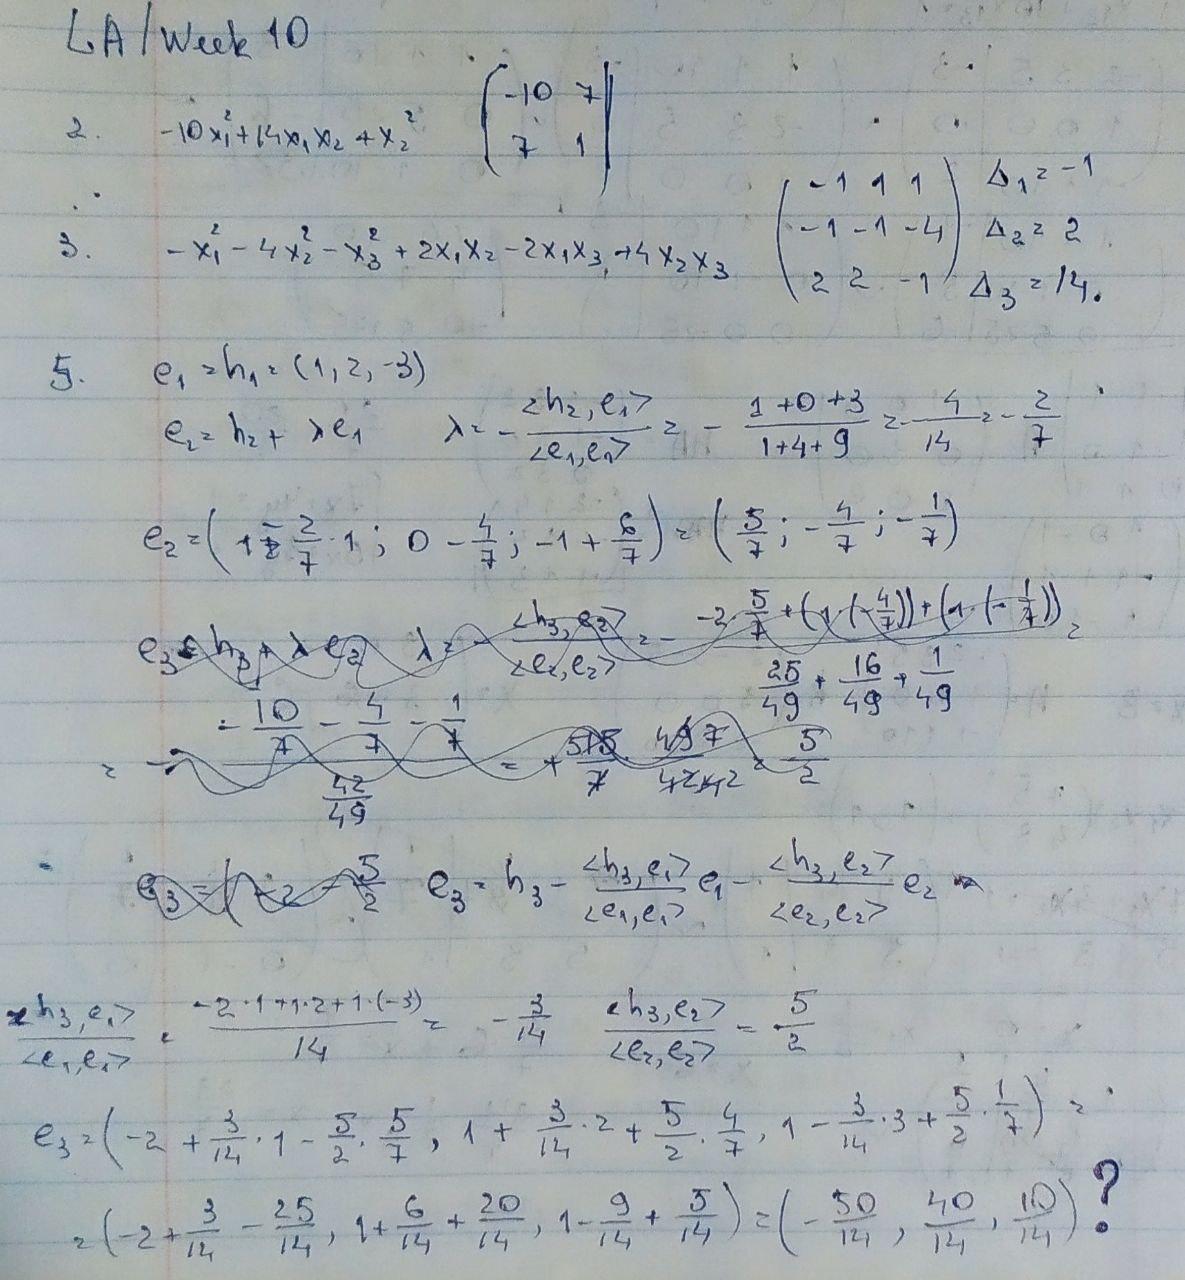 LA/Week 10
2. -10x₁² + 14x₁x₂ + x₂² ( -10 7
7 1 )
3. -x₁² - 4x₂² - x₃² + 2x₁x₂ - 2x₁x₃ + 4x₂x₃ ( -1 1 1 ) Δ₁ = -1
-1 -1 -4 Δ₂ = 2
2 2 -1 Δ₃ = 14.
5. e₁ = h₁ = (1, 2, -3)
e₂ = h₂ + λe₁ λ = - <h₂, e₁>/<e₁, e₁> = - (1+0+3)/(1+4+9) = - 4/14 = - 2/7
e₂ = (1 - 2/7 · 1; 0 - 4/7; -1 + 6/7) = (5/7; -4/7; -1/7)
e₃ = h₃ + λe₂ λ = - <h₃, e₂>/<e₂, e₂> = - (-2 · 5/7 + (1·(-4/7)) + (1·(-1/7)))/(25/49 + 16/49 + 1/49) =
= - (-10/7 - 4/7 - 1/7)/(42/49) = + 15/7 · 49 7/42 = 5/2
e₃ = ( -2 - 5/2 e₃ = h₃ - <h₃, e₁>/<e₁, e₁> e₁ - <h₃, e₂>/<e₂, e₂> e₂
<h₃, e₁>/<e₁, e₁> = (-2·1+1·2+1·(-3))/14 = - 3/14 <h₃, e₂>/<e₂, e₂> = 5/2
e₃ = (-2 + 3/14 · 1 - 5/2 · 5/7, 1 + 3/14 · 2 + 5/2 · 4/7, 1 - 3/14 · 3 + 5/2 · 1/7) =
= (-2 + 3/14 - 25/14, 1 + 6/14 + 20/14, 1 - 9/14 + 5/14) = (-50/14, 40/14, 10/14) ?